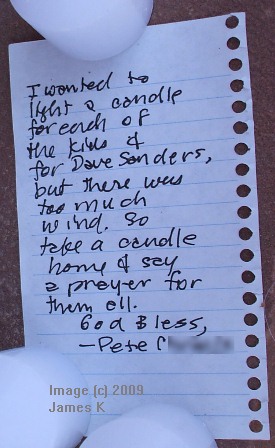 I wanted to
light a candle
for each of
the kids &
for Dave Sanders,
but there was
too much
wind. So
take a candle
home & say
a prayer for
them all.
God Bless,
-Pete
Image (c) 2009
James K